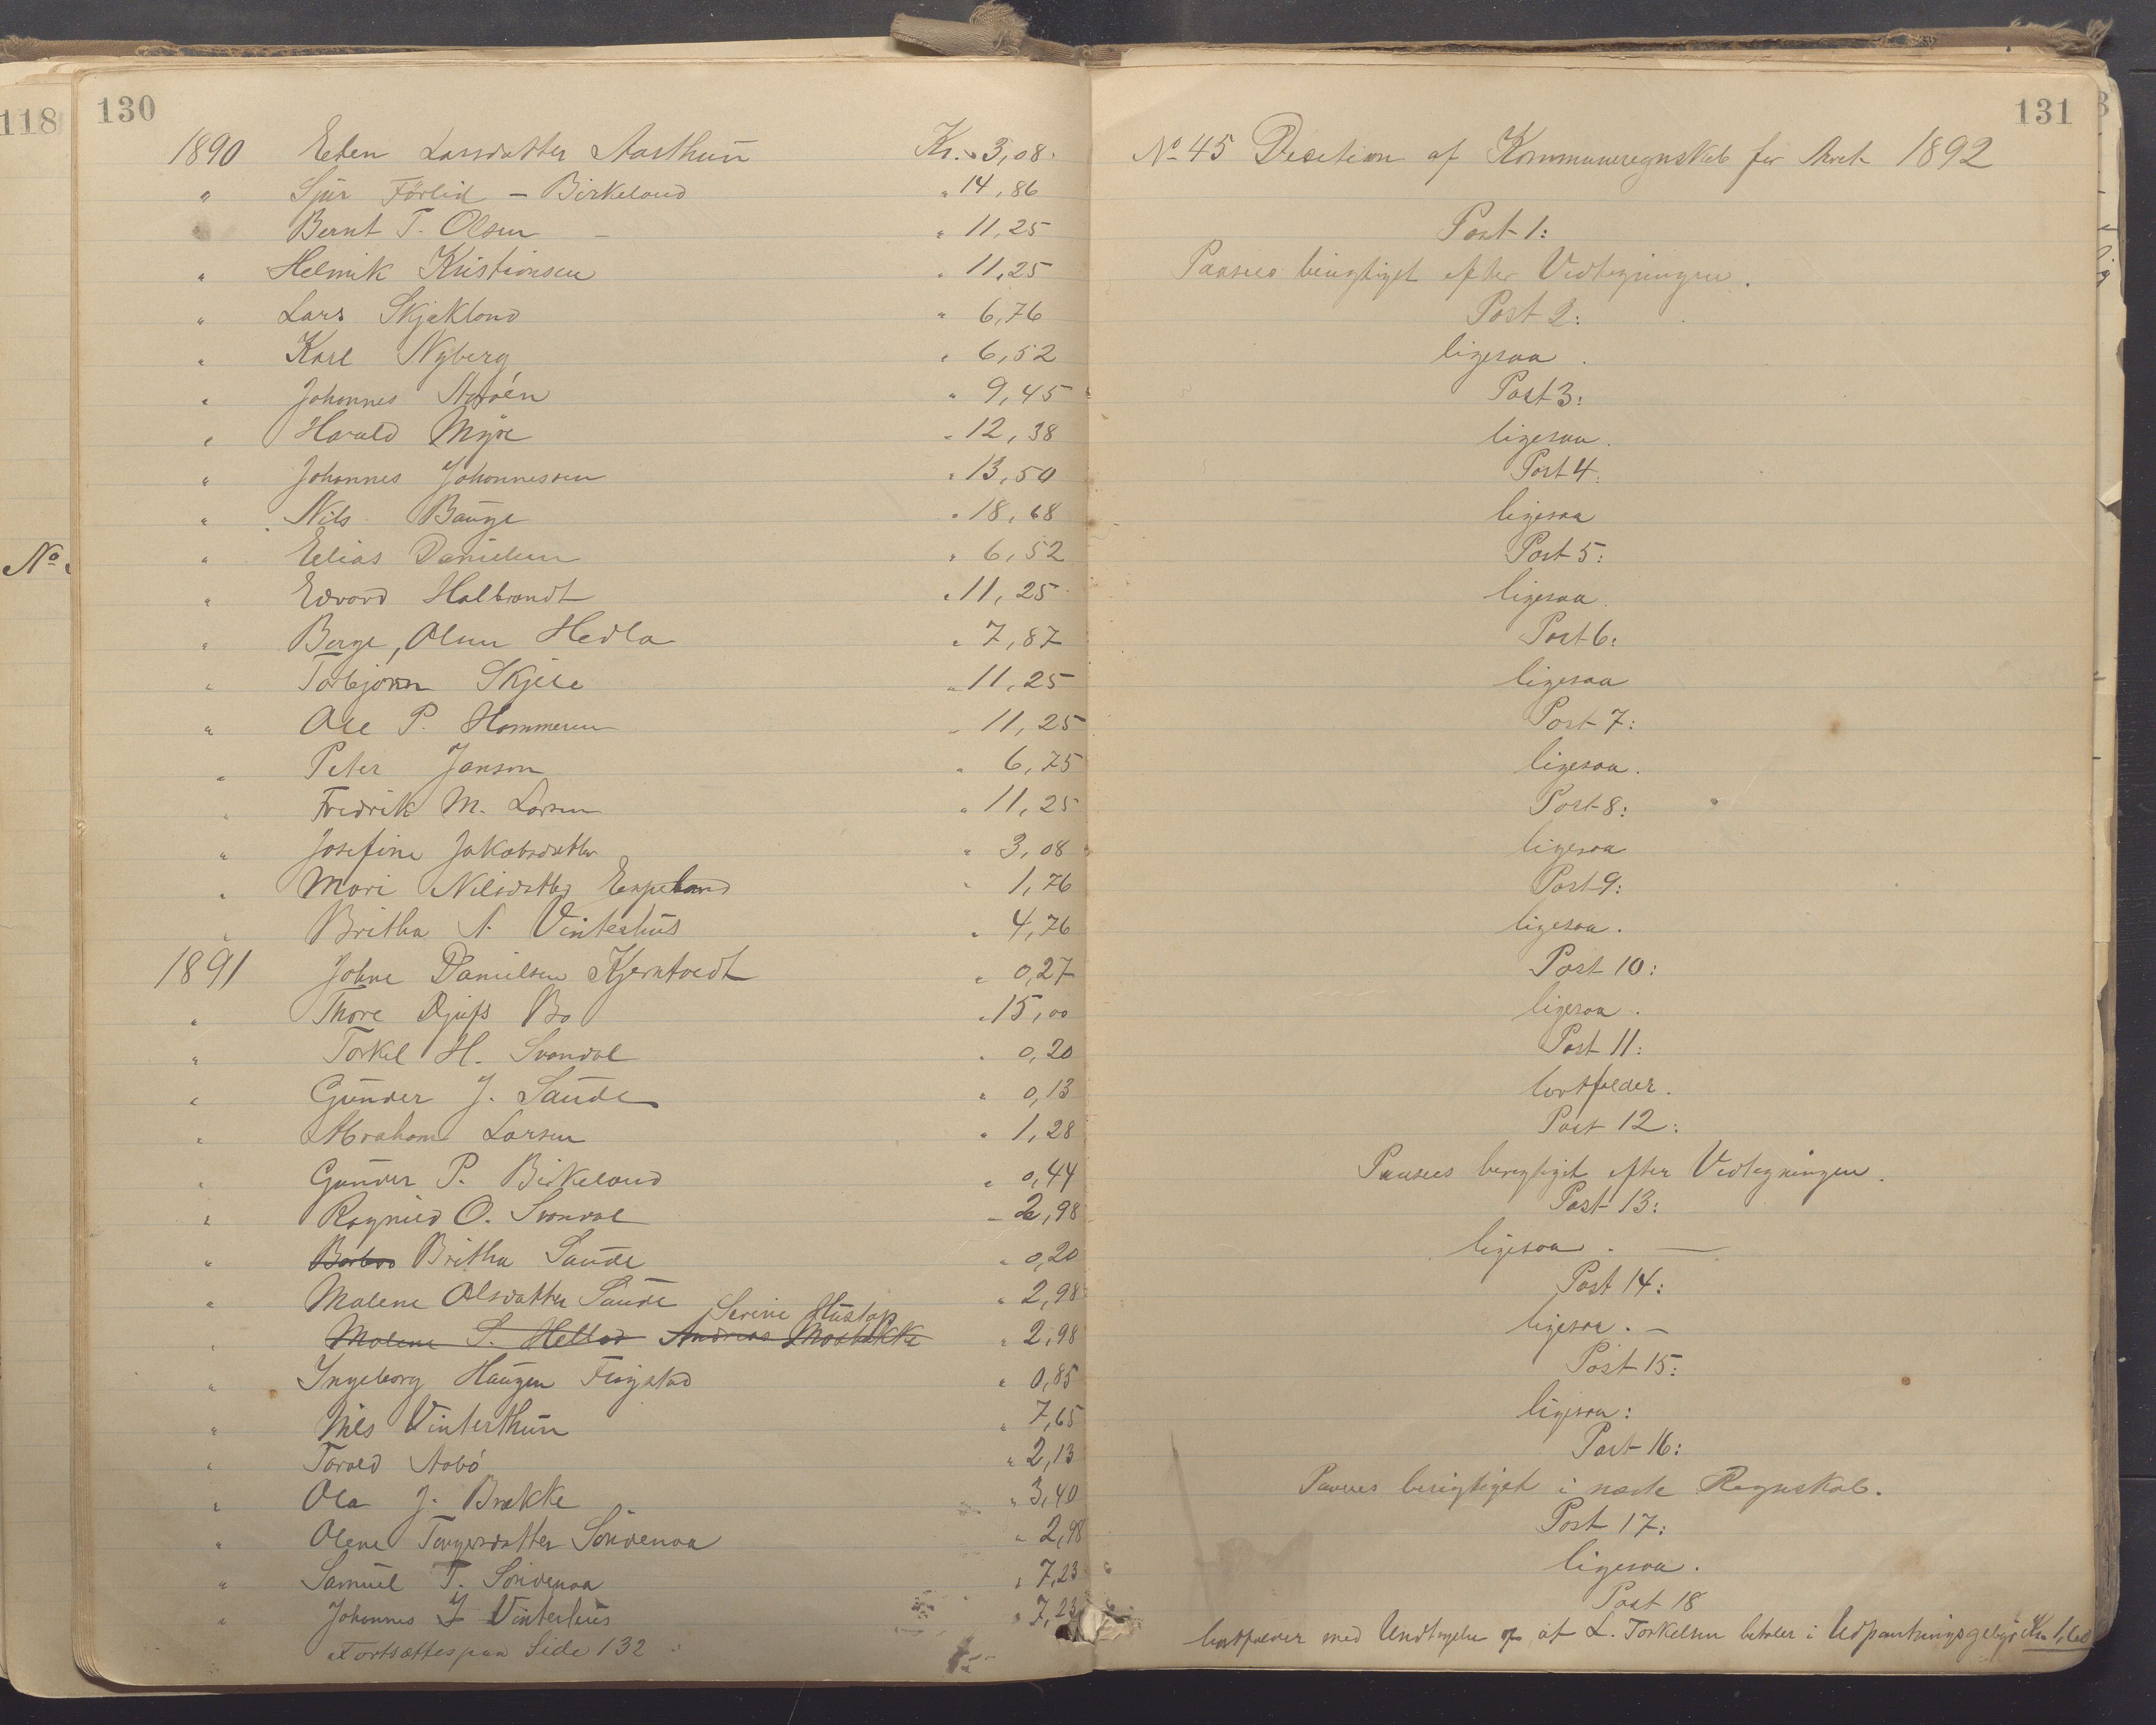 118
No
130
1890 Ellen Larsdatter Aarthun Kr. 3,08.
" Sjur Förlid - Birkeland " 14,86
Bernt T. Olsen - " 11,25
" Helmik Kristiansen " 11,25
" Lars Skjeklond " 6,76
" Karl Nyberg " 6,52
" Johannes " 9,45
" Harald Myre " 12,38
" Johannes Johannessen " 13,50
" Nils Bauge " 18,68
" Elias Danielsen " 6,52
" Edvard Halbrandt " 11,25
" Berge, Olsen Hedla " 7,87
" Torbjørn Skjele " 11,25
" Ole P. Hammeren " 11,25
" Peter Janson " 6,75
" Fredrik M. Larsen " 11,25
" Josefine Jakobsdatter " 3,08
" Mari Nilsdatter Espeland " 1,76
" Britha N. Vinterhus " 4,76
1891 Johne Danielsen Kjerntvedt " 0,27
" Thore Djufs Bø " 15,00
" Torkel H. Svandal " 0,20
" Gunder J. Saude " 0,13
" Abraham Larsen " 1,28
" Gunder P. Birkeland " 0,44
" Ragnild O. Svandal " 2,98
" Barbro Britha Saude " 0,20
" Malene Olsdatter Saude " 2,98
Serine Hustap
" Malene S. Hellad Andreas " 2,98
" Ingeborg Haugen Fisgstad " 0,85
" Nils Vinterthun " 7,65
" Tarald Aabö " 2,13
" Ola J. Brekke " 3,40
" Olene Tengesdatter Söndenaa " 2,98
" Samuel T. Söndenaa " 7,23
" Johannes J Vinterhus " 7,23
Fortsættes paa Side 132
131
No 45 Desition af Kommuneregnskab for Aaret 1892
Post 1:
Paasees berigtiget efter Vedtegningen.
Post 2:
ligesaa.
Post 3:
ligesaa.
Post 4.
ligesaa
Post 5:
ligesaa.
Post 6:
ligesaa
Post 7:
ligesaa.
Post 8:
ligesaa
Post 9:
ligesaa.
Post 10:
ligesaa.
Post 11:
bortfalder.
Post 12:
Paasees berigtiget efter Vedtegningen.
Post 13:
ligesaa. —
Post 14:
ligesaa. —
Post 15:
ligesaa:
Post 16:
Paasees berigtiget i næste Regnskab.
Post 17:
ligesaa.
Post 18
bortfalder med Undtagelse af, at L. Torkelsen betaler i Udpantningsgebyr Kr. 1,60